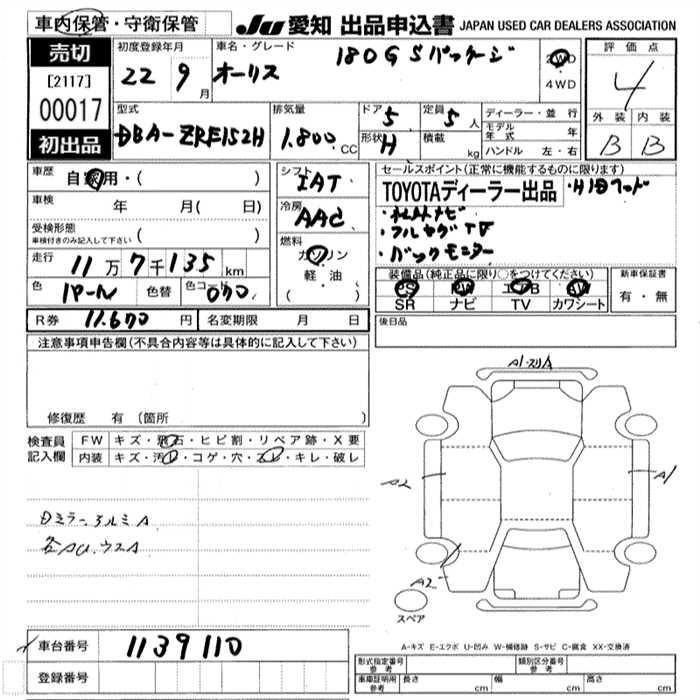 車内保管・守衛保管
JU 愛知 出品申込書 JAPAN USED CAR DEALERS ASSOCIATION
売切
[2117]
00017
初出品
初度登録年月
22 9月
車名・グレード
オーリス 180G Sパッケージ
2WD
4WD
評価点
4
外装 内装
B B
型式
DBA-ZRE152H
排気量
1.800 CC
ドア 5
形状 H
定員 5人
積載 kg
ディーラー・並行
モデル年式 年
ハンドル 左・右
車歴
自家用・( )
車検 年 月( 日)
受検形態
車検付きのみ記入して下さい ( )
走行
11万7千135km
色 パール 色替 色コード 070
R券 11.670円 名変期限 月 日
シフト
IAT
冷房
AAC
燃料
ガソリン
軽・油
( )
セールスポイント(正常に機能するものに限ります)
TOYOTAディーラー出品
・フルセグTV
・バックモニター
装備品(純正品に限り○をつけてください)
PS PW エアB AW
SR ナビ TV カワシート
新車保証書
有・無
後日品
注意事項申告欄(不具合内容等は具体的に記入して下さい)
修復歴 有(箇所 )
検査員記入欄
FW キズ・飛石・ヒビ割・リペア跡・X要
内装 キズ・汚レ・コゲ・穴・スレ・キレ・破レ
A2
A1
A2
スペア
A-キズ E-エクボ U-凹み W-補修跡 S-サビ C-腐食 XX-交換済
車台番号 1139110
登録番号
形式指定番号 参考
類別区分番号 参考
車庫証明用 参考 長さ cm 幅 cm 高さ cm